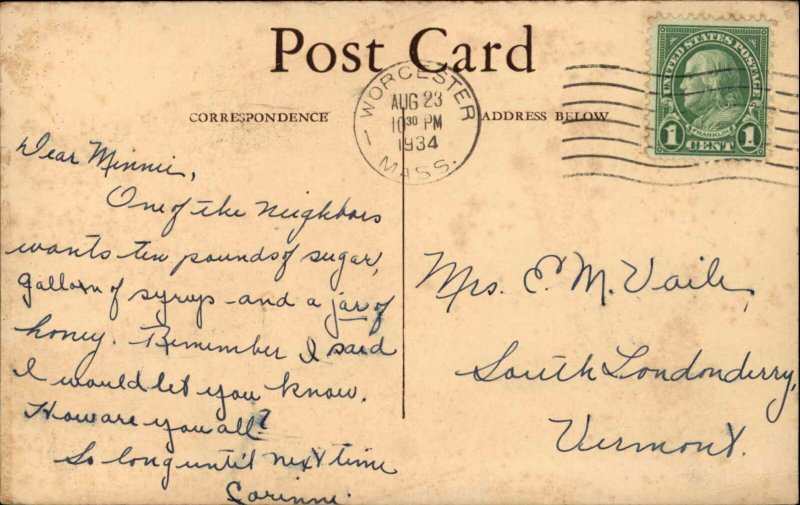 Post Card
CORRESPONDENCE
ADDRESS BELOW
WORCESTER
AUG 23
10 30 PM
1934
MASS.
UNITED STATES POSTAGE
FRANKLIN
1 CENT 1
Dear Minnie,
One of the neighbors
wants ten pounds of sugar,
gallon of syrup and a jar of
honey. Remember I said
I would let you know.
How are you all?
So long until next time
Corinne.
Mrs. E. M. Vaile,
South Londonderry,
Vermont.